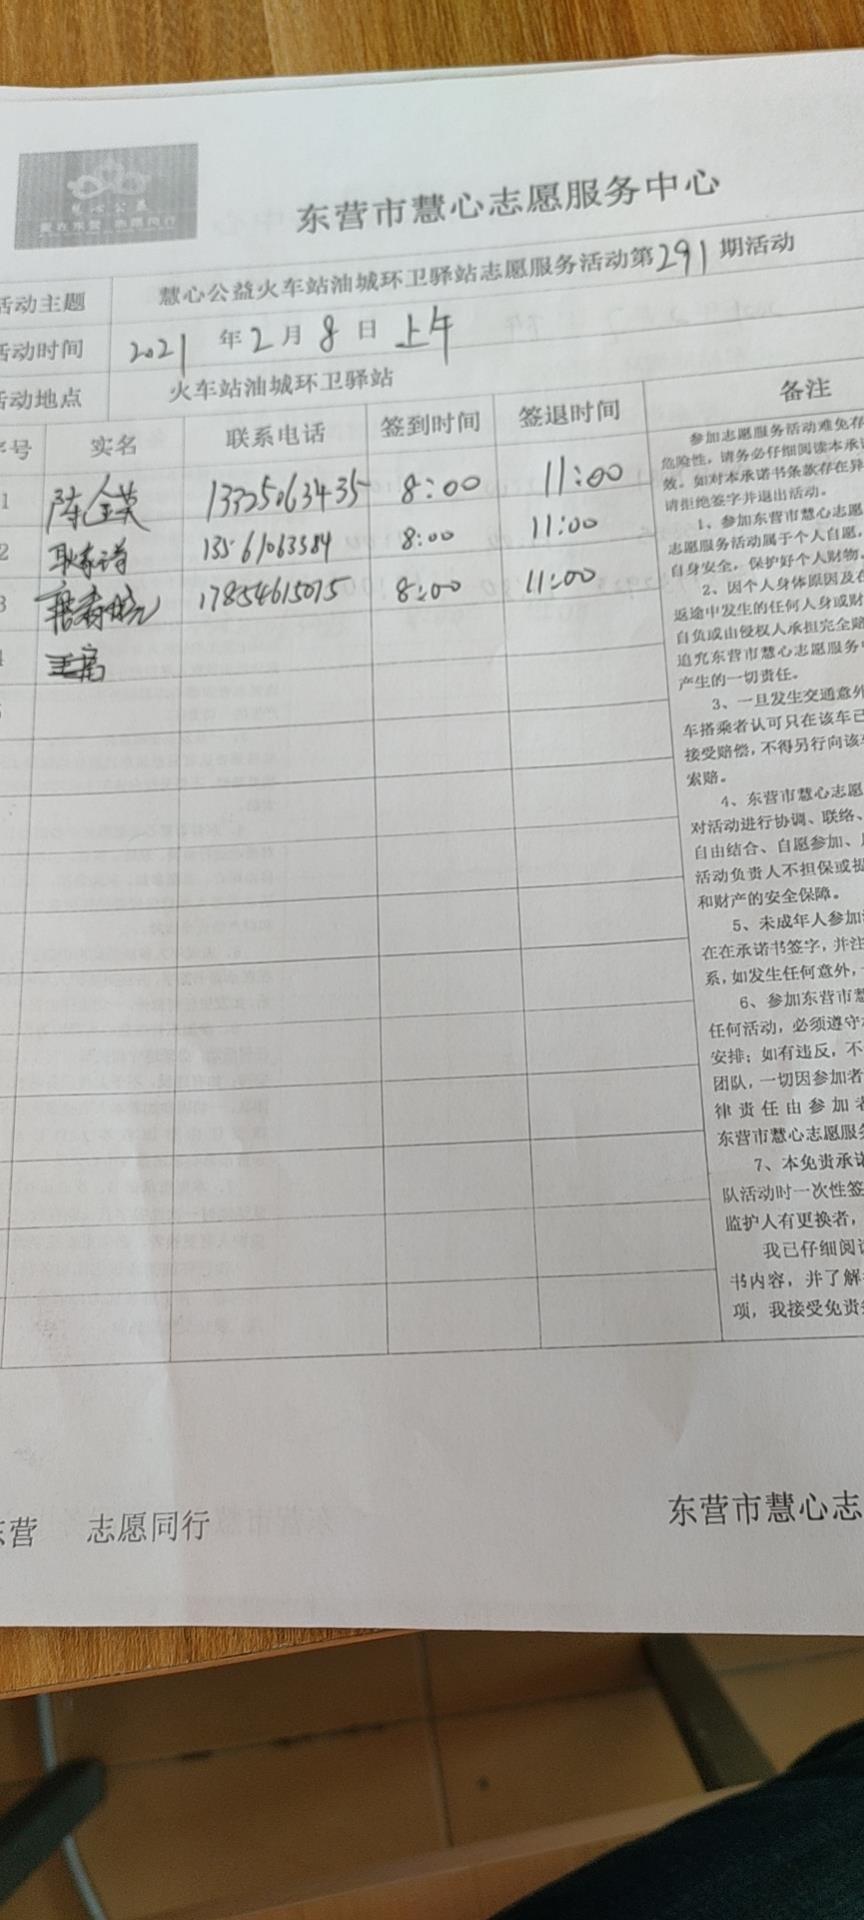 慧心公益
爱在东营 志愿同行
东营市慧心志愿服务中心
活动主题 慧心公益火车站油城环卫驿站志愿服务活动第291期活动
活动时间 2021年2月8日上午
活动地点 火车站油城环卫驿站
序号 实名 联系电话 签到时间 签退时间 备注
1 陈金英 13325063435 8:00 11:00
2 13561063384 8:00 11:00
3 17854615075 8:00 11:00
4
5
参加志愿服务活动难免存
危险性,请务必仔细阅读本承诺
效。如对本承诺书条款存在异
请拒绝签字并退出活动。
1、参加东营市慧心志愿
志愿服务活动属于个人自愿,
自身安全,保护好个人财物,
2、因个人身体原因及在
返途中发生的任何人身或财
自负或由侵权人承担完全赔
追究东营市慧心志愿服务中
产生的一切责任。
3、一旦发生交通意外
车搭乘者认可只在该车已
接受赔偿,不得另行向该车
索赔。
4、东营市慧心志愿
对活动进行协调、联络、
自由结合、自愿参加、
活动负责人不担保或提
和财产的安全保障。
5、未成年人参加活
在在承诺书签字,并注
系,如发生任何意外,
6、参加东营市慧
任何活动,必须遵守
安排;如有违反,不
团队,一切因参加者
律责任由参加者
东营市慧心志愿服务
7、本免责承诺
队活动时一次性签
监护人有更换者,
我已仔细阅读
书内容,并了解
项,我接受免责
东营 志愿同行 东营市慧心志